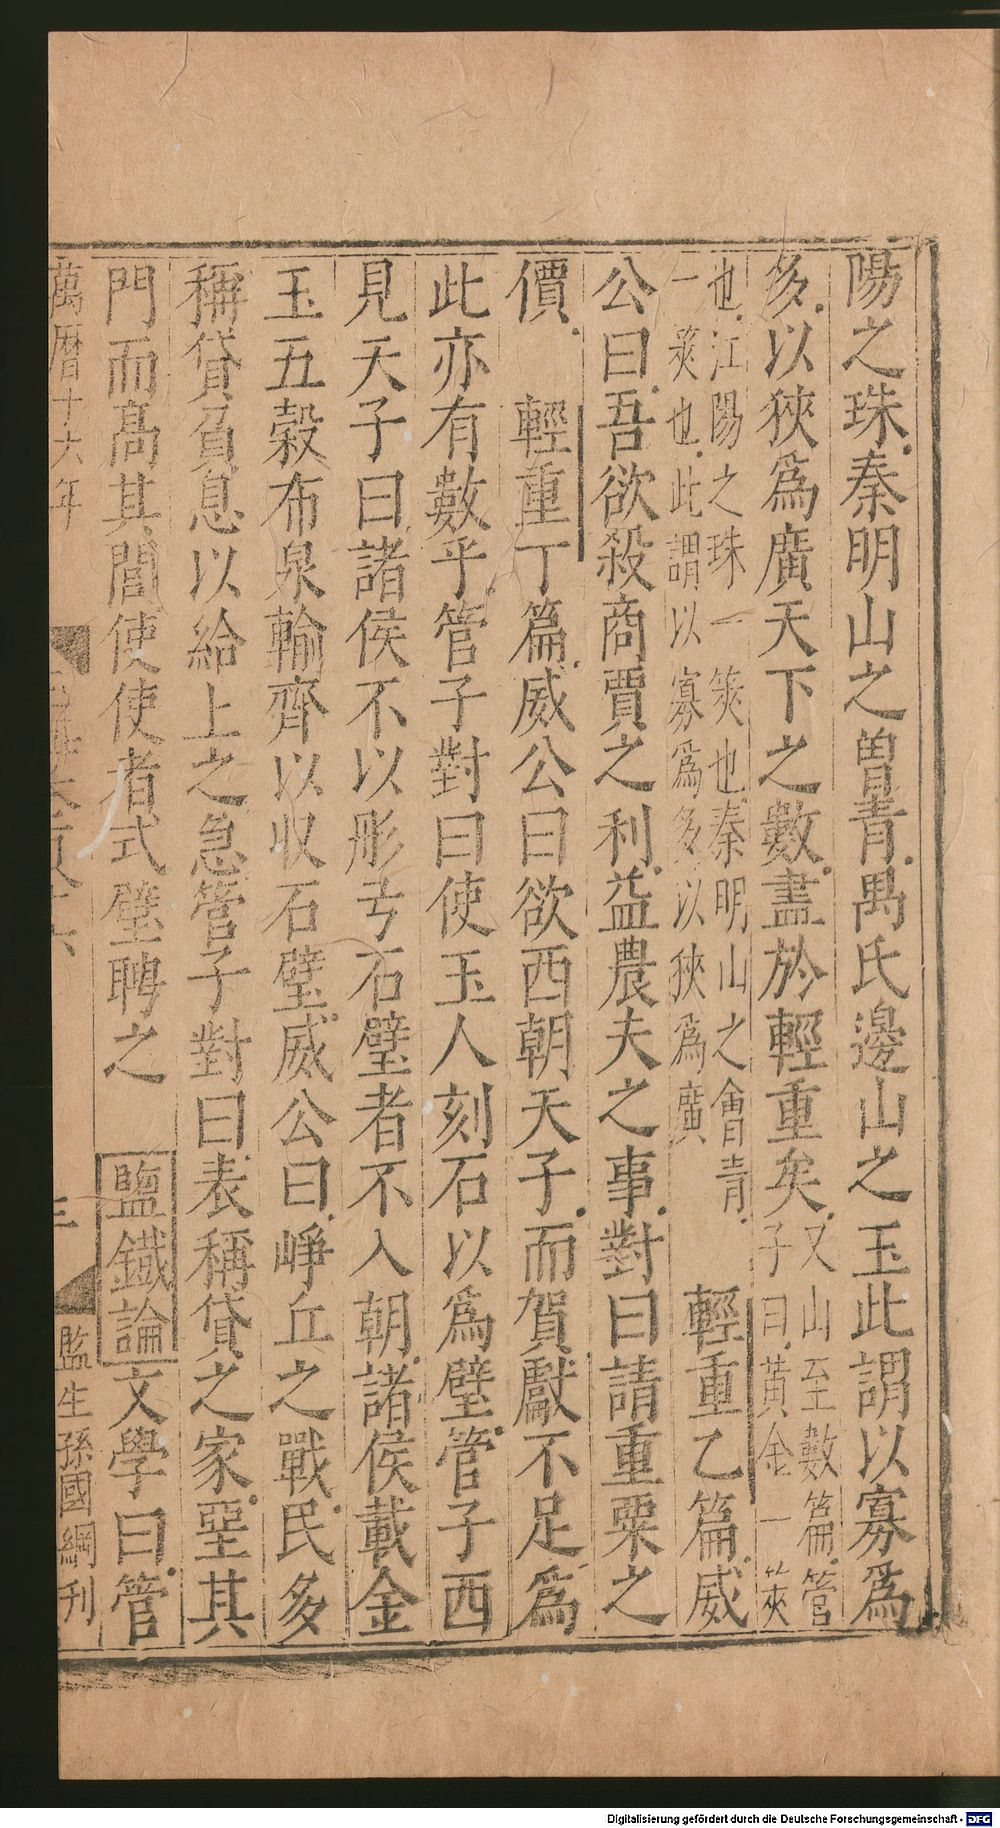 陽之珠秦明山之曽青禺氏邊山之玉此謂以寡爲
多以狹爲廣天下之數盡於輕重矣又山至數篇管
子曰黃金一筴
也江陽之珠一筴也秦明山之會青
一筴也此謂以寡爲多以狹爲廣
輕重乙篇威
公曰吾欲殺商賈之利益農夫之事對曰請重粟之
價　輕重丁篇威公曰欲西朝天子而賀獻不足爲
此亦有數乎管子對曰使玉人刻石以爲璧管子西
見天子曰諸侯不以彤弓石璧者不入朝諸侯載金
玉五穀布泉輸齊以収石璧威公曰崢丘之戰民多
稱貸負息以給上之急管子對曰表稱貸之家堊其
門而髙其閭使使者式璧聘之　鹽鐵論文學曰管
萬曆十六年
三
監生孫國綱刊
Digitalisierung gefördert durch die Deutsche Forschungsgemeinschaft - DFG